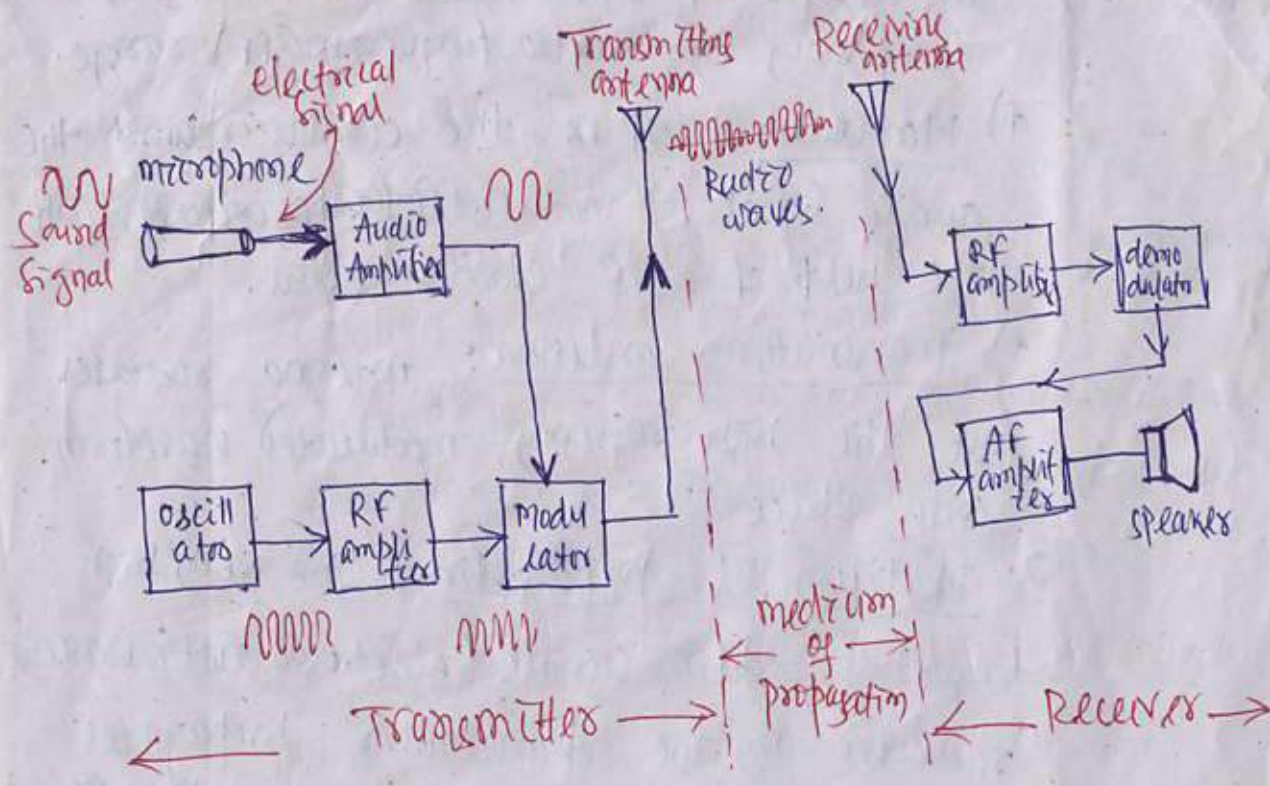 electrical
signal
Transmitting
antenna
Receiving
antenna
microphone
Sound
Signal
Audio
Amplifier
Radio
waves.
RF
amplifier
demo
dulator
AF
amplif
ier
speaker
oscill
ator
RF
ampli
fier
modu
lator
medium
of
propagation
Transmitter
Receiver